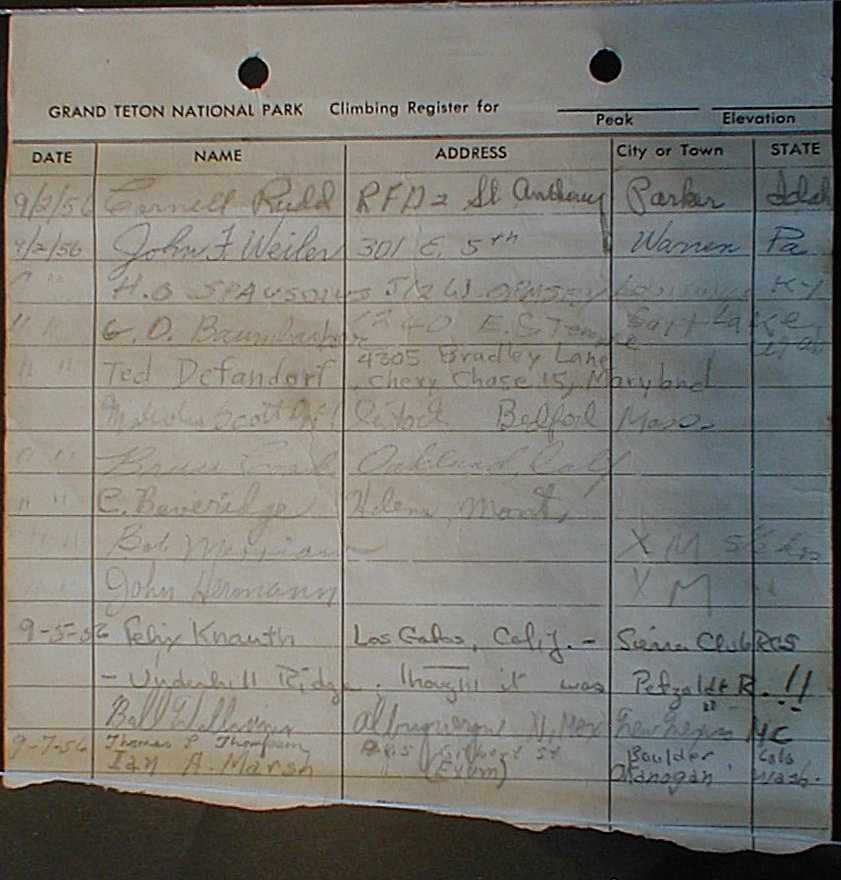 GRAND TETON NATIONAL PARK Climbing Register for
Peak Elevation
DATE NAME ADDRESS City or Town STATE
9/2/56 Cornell Rudd RFD 2 St Anthony Parker Idah
9/2/56 John F. Weiler 301 E. 5th Warren Pa
" " H.O 512 W. ORMSBY Louisville KY
" " G. D. 1240 E. S Temple Salt Lake, Utah
" " Ted Defandorf 4305 Bradley Lane
Chevy Chase 15, Maryland
Malcolm Scott Bedford Mass.
" " Bruce Oakland, Calif
" " C. Beveridge Helena, Mont,
" " Bob Merriam X M
" " John Hermann X M "
9-5-56 Felix Knauth Los Gatos, Calif. - Sierra Club RCS
- Underhill Ridge, thought it was Petzoldt R. !!
Bill Williams Albuquerque N, Mex New Mexico MC
9-7-56 Thomas P Thompson Gilbert St Boulder Colo
Ian A. Marsh " (Exum) Okanogan Wash.